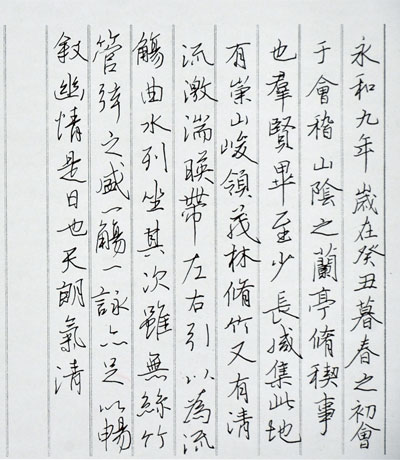 永和九年歲在癸丑暮春之初會
于會稽山陰之蘭亭脩稧事
也羣賢畢至少長咸集此地
有崇山峻領茂林脩竹又有清
流激湍暎帶左右引以為流
觴曲水列坐其次雖無絲竹
管弦之盛一觴一詠亦足以暢
敘幽情是日也天朗氣清